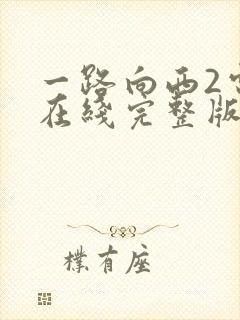 一路向西2
在线完整版
樸有座